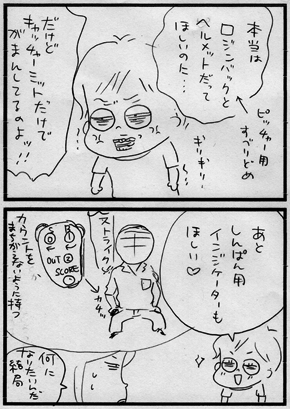 本当は
ロジンバックと
ヘルメットだって
ほしいのに…
ピッチャー用
すべりどめ
ギリギリ…
だけど
キャッチャーミットだけで
がまんしてるのよッ!!
あと
しんぱん用
インジケーターも
ほしい♡
ストライク
カチッ
S
B
OUT
SCORE
カウントを
まちがえないように持つ
何に
なりたいんだ
結局